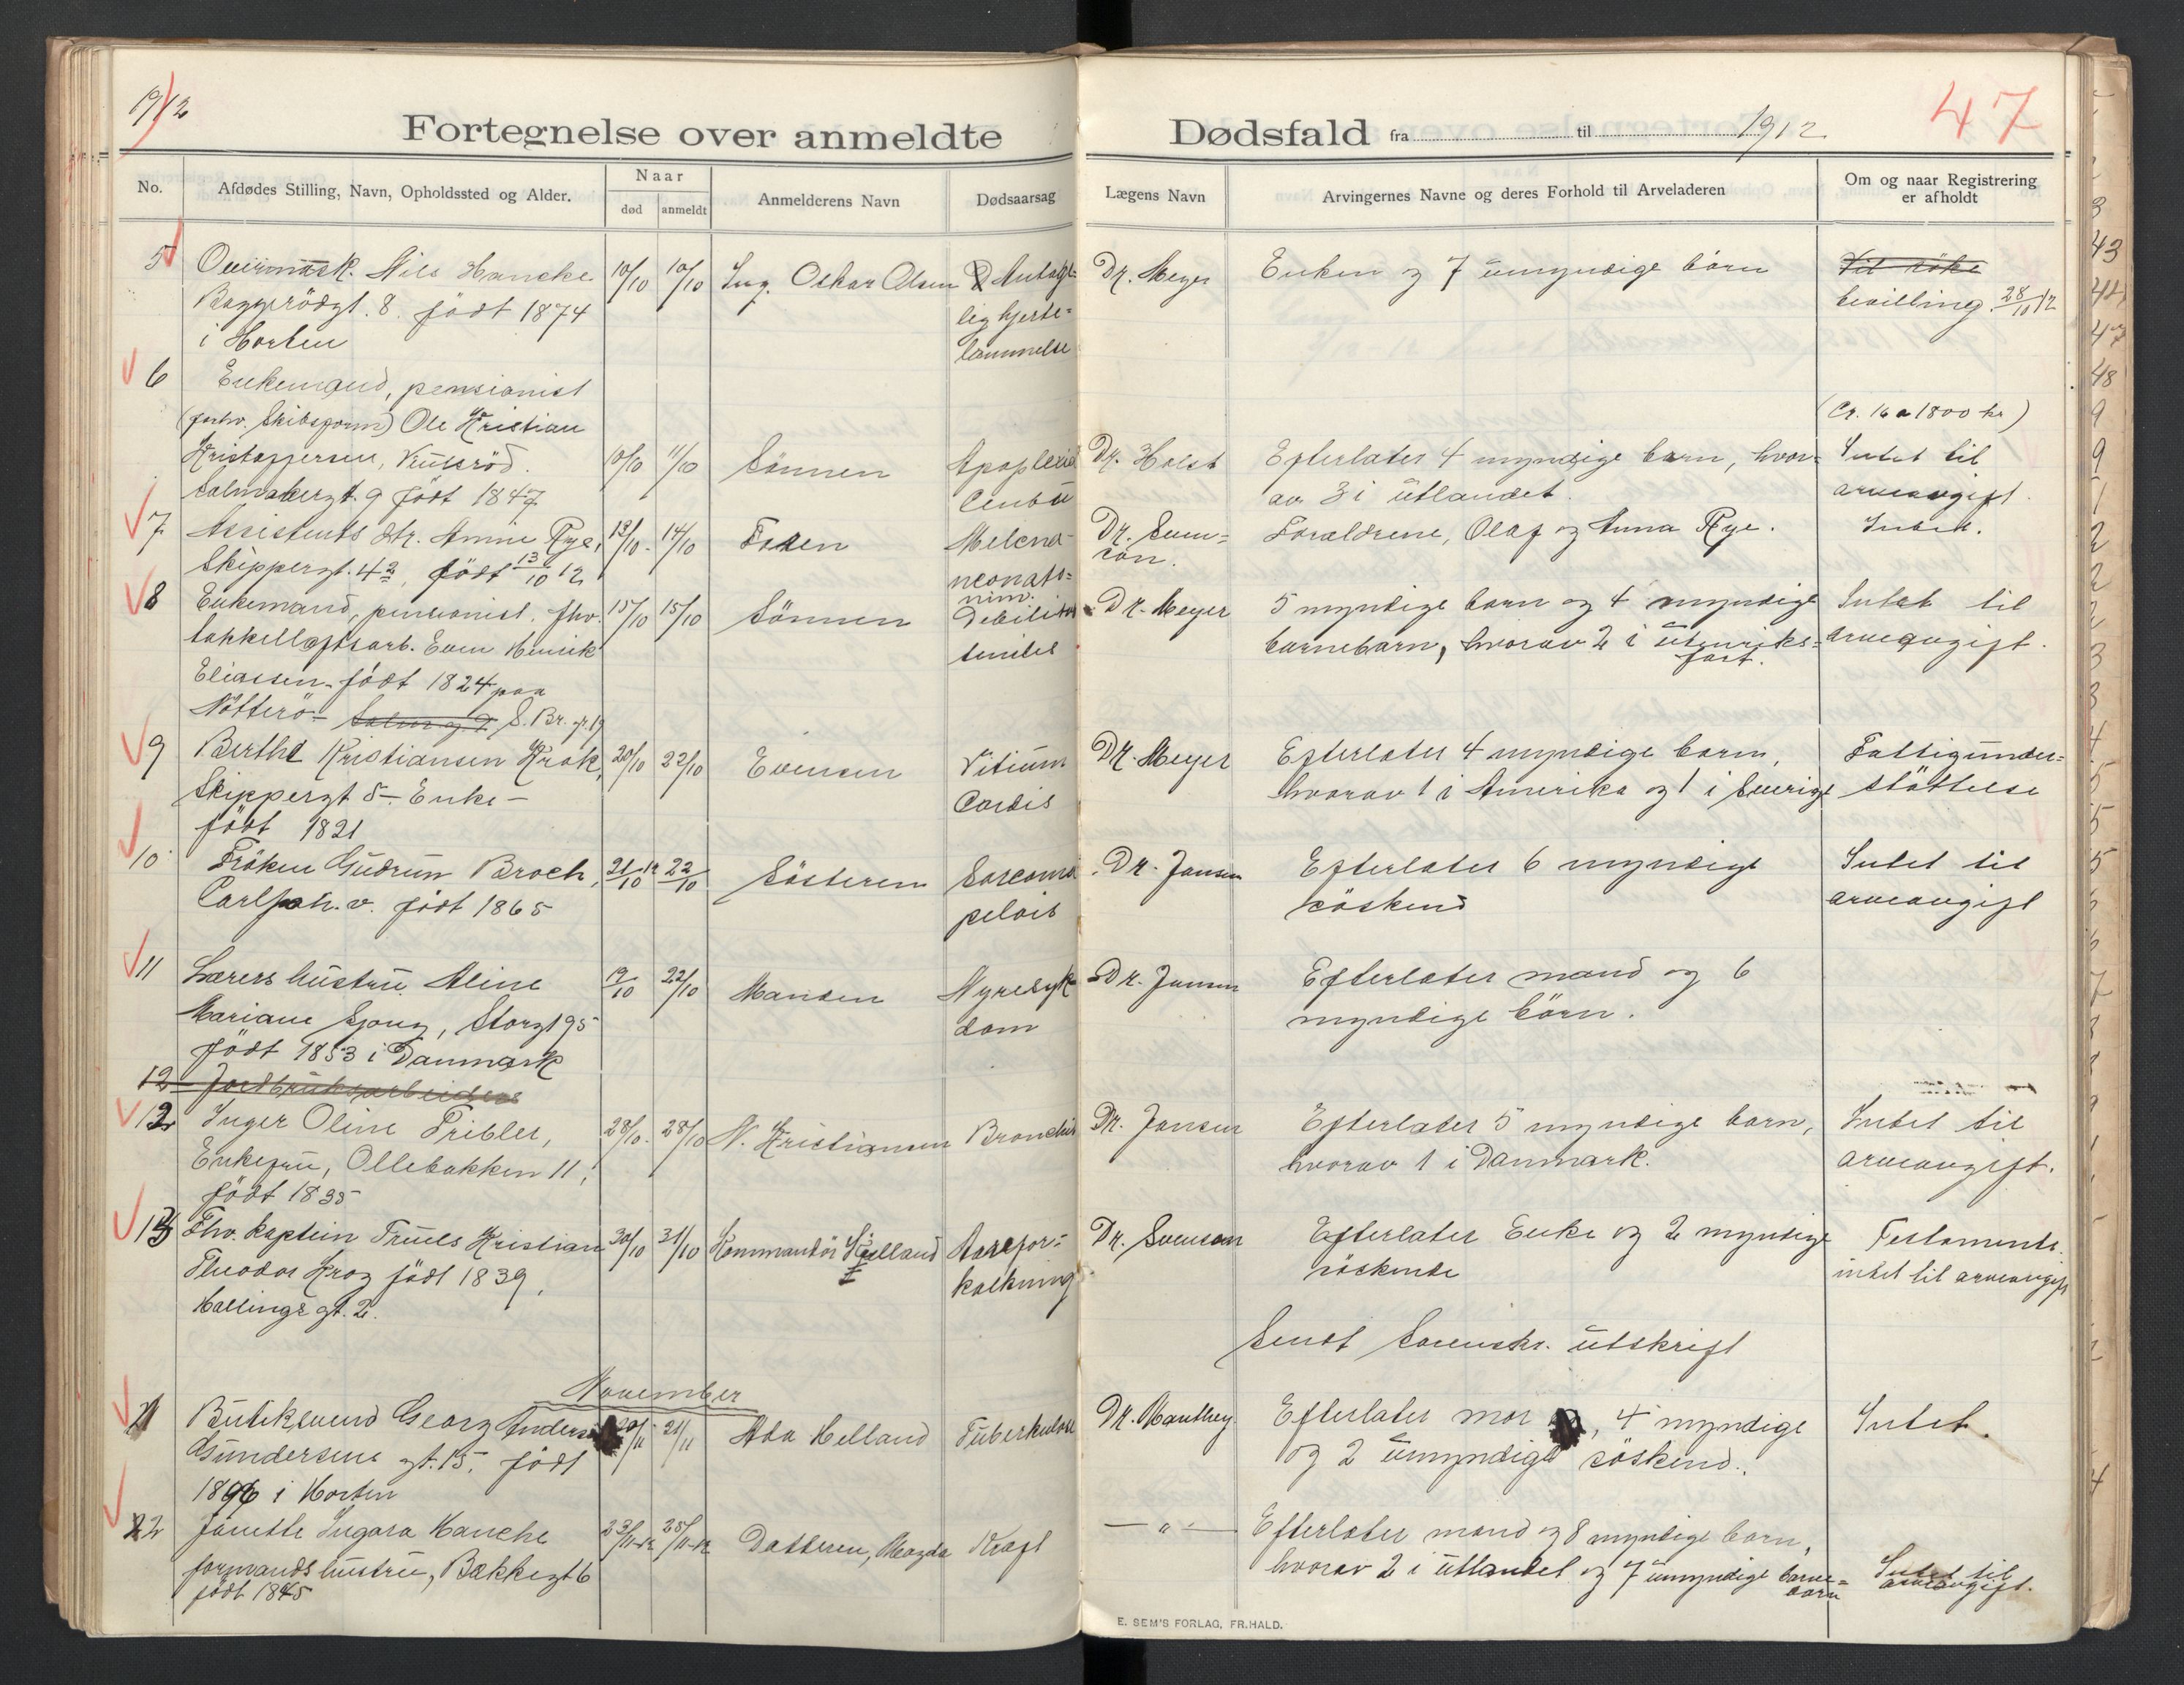 1912
47
Fortegnelse over anmeldte Dødsfald fra til 1912
No.
Afdødes Stilling, Navn, Opholdssted og Alder.
Naar
død
anmeldt
Anmelderens Navn
Dødsaarsag
Lægens Navn
Arvingernes Navne og deres Forhold til Arveladeren
Om og naar Registrering
er afholdt
5 Nils Hancke 10/10 10/10 Ing. Oskar Olsen Antagt- Dr. Meyer Enken og 7 umyndige börn
Baggerödgt. 8. födt 1874 lig hjerte=
bevilling. 28/10 12
i Horten lammelse
6 Enkemand, pensionist
Ole Kristian (Ca. 16 a 1800 kr)
Kristoffersen, 10/10 11/10 Sönnen Apoplexia Dr. Holst Efterlater 4 myndige barn, hvor= Intet til
gt. 9 födt 1847 av 3 i utlandet. arveavgift.
7 Assistents dtr. Annie Rye, 13/10 14/10 Faren Melena Dr. Sven= Foraldrene, Olaf og Anna Rye. Intet.
Skippergt. 42, födt 13/10 12 neonato= son.
num.
8 Enkemand, pensionist, fhv. 15/10 15/10 Sönnen Debilitas Dr. Meyer 5 myndige barn og 4 myndige Intet til
takkelloftsarb. Even Henrik senilis barnebarn, hvorav 2 i utenriks= arveavgift.
fart.
Eliassen. födt 1824 paa
Nötterö S. Br. gt. 19
9 Berthe Kristiansen Krok, 20/10 22/10 Evensen Vitium Dr. Meyer Efterlater 4 myndige barn, Fattigunder=
Skippergt 5. Enke- Cordis hvorav 1 i Amerika og 1 i Sverige stöttelse
födt 1821
10 Fröken Gudrun Broch, 21/10 12 22/10 Sösteren Sarcoma Dr. Jansen Efterlater 6 myndige Intet til
v. födt 1865 pelvis söskend arveavgift
11 Lærers hustru Aline 19/10 22/10 Manden Nyresyk Dr. Jansen Efterlater mand og 6
Mariane Sjong, Storgt 95 dom myndige börn.
födt 1853 i Danmark
12 Jordbruksarbeider
12 Inger Oline Tribler, 28/10 28/10 N. Kristiansen Dr. Jansen Efterlater 5 myndige barn, Intet til
Enkefru, Ollebakken 11, hvorav 1 i Danmark. arveavgift.
födt 1835
13 Fhv. kaptein Truels Kristian 30/10 31/10 Kommandör Kielland Aarefor= Dr. Svenson Efterlater Enke og 2 myndige Testamente
Theodor Krog födt 1839, kalkning söskende intet til arveavgift
Hallings gt. 2.
Sendt Sorenskr. utskrift
November
21 Butiksvend Georg Anders 20/11 21/11 Ada Helland Tuberkulose Dr. Manthey Efterlater mor, 4 myndige Intet.
Gundersens gt. 15, födt og 2 umyndige söskend.
1896 i Horten
22 Janette Ingara Hancke 23/11-12 25/11-12 Datteren, Magda Kræft — " — Efterlater mand og 8 myndige barn,
formands hustru, Bakkegt 6 hvorav 2 i utlandet og 7 umyndige barne= Intet til
födt 1845 barn arveavgift.
E. SEM'S FORLAG, FR.HALD.